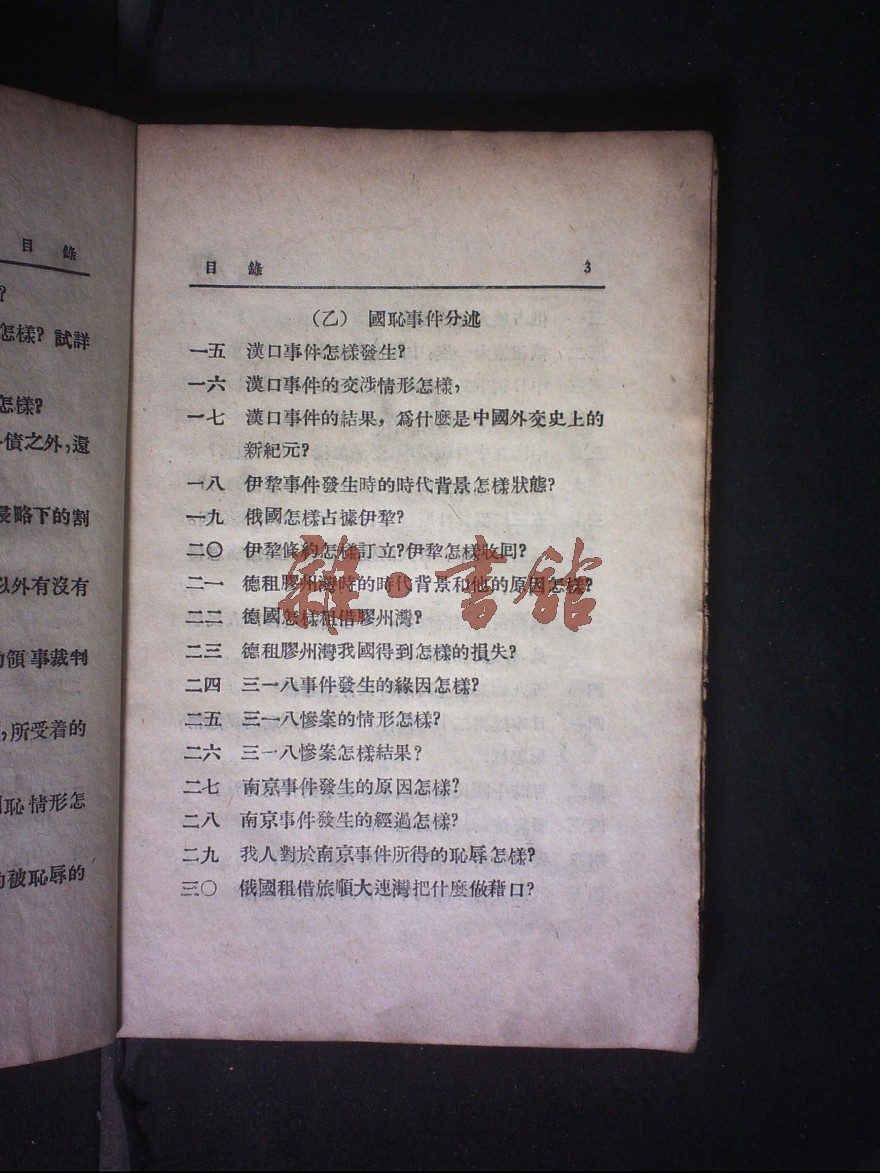 目錄
?
怎樣?試詳
怎樣?
債之外,還
侵略下的割
以外有沒有
領事裁判
,所受着的
恥情形怎
被恥辱的
目錄 3
(乙) 國恥事件分述
一五 漢口事件怎樣發生?
一六 漢口事件的交涉情形怎樣,
一七 漢口事件的結果,爲什麼是中國外交史上的
新紀元?
一八 伊犂事件發生時的時代背景怎樣狀態?
一九 俄國怎樣占據伊犂?
二〇 伊犂條約怎樣訂立?伊犂怎樣收回?
二一 德租膠州灣時的時代背景和他的原因怎樣?
二二 德國怎樣租借膠州灣?
二三 德租膠州灣我國得到怎樣的損失?
二四 三一八事件發生的緣因怎樣?
二五 三一八慘案的情形怎樣?
二六 三一八慘案怎樣結果?
二七 南京事件發生的原因怎樣?
二八 南京事件發生的經過怎樣?
二九 我人對於南京事件所得的恥辱怎樣?
三〇 俄國租借旅順大連灣把什麼做藉口?
雜·書館